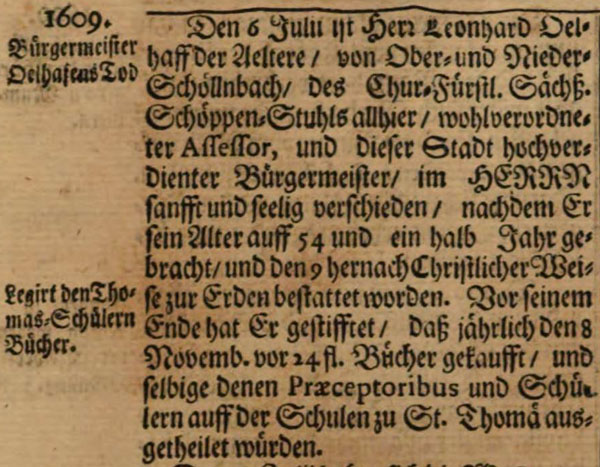 1609.
Bürgermeister
Oelhafens Tod
Den 6 Julii ist Herr Leonhard Oel-
haff der Aeltere / von Ober- und Nieder-
Schöllnbach / des Chur-Fürstl. Sächß.
Schöppen-Stuhls allhier / wohlverordne-
ter Assessor, und dieser Stadt hochver-
dienter Bürgermeister / im HERRN
sanfft und seelig verschieden / nachdem Er
sein Alter auff 54 und ein halb Jahr ge-
bracht / und den 9 hernach Christlicher Wei-
se zur Erden bestattet worden. Vor seinem
Ende hat Er gestifftet / daß jährlich den 8
Novemb. vor 24 fl. Bücher gekaufft / und
selbige denen Præceptoribus und Schü-
lern auff der Schulen zu St. Thomä aus-
getheilet würden.
Legirt den Tho-
mas-Schülern
Bücher.